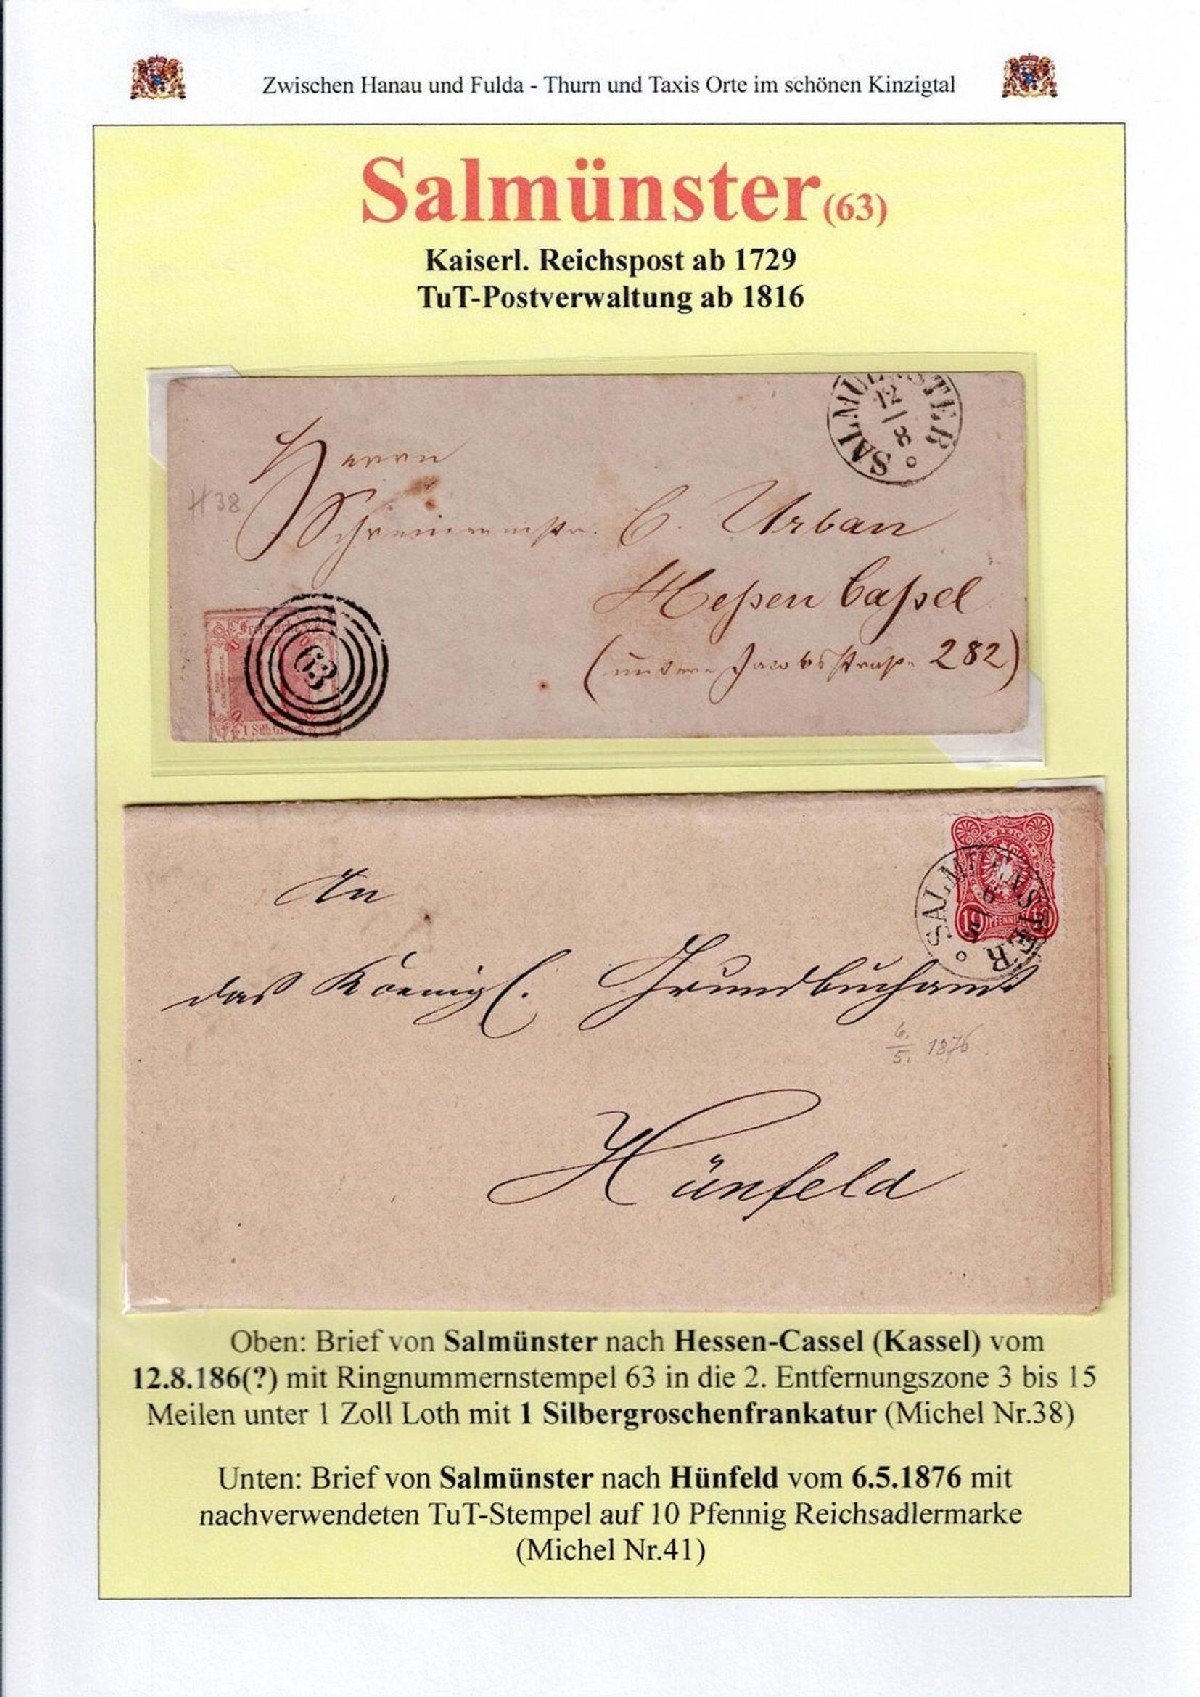 Zwischen Hanau und Fulda - Thurn und Taxis Orte im schönen Kinzigtal
Salmünster (63)
Kaiserl. Reichspost ab 1729
TuT-Postverwaltung ab 1816
SALMUENSTER
12/8
Herrn
H38
Schreinermstr. C. Urban
Hessen Cassel
(untere Jacobsstraße 282)
63
1 Silb.Gr.
An
SALMUENSTER
6/5
10 PFENNIG 10
das Koenigl. Grundbuchamt
6./5. 1876
Hünfeld
Oben: Brief von Salmünster nach Hessen-Cassel (Kassel) vom
12.8.186(?) mit Ringnummernstempel 63 in die 2. Entfernungszone 3 bis 15
Meilen unter 1 Zoll Loth mit 1 Silbergroschenfrankatur (Michel Nr.38)
Unten: Brief von Salmünster nach Hünfeld vom 6.5.1876 mit
nachverwendeten TuT-Stempel auf 10 Pfennig Reichsadlermarke
(Michel Nr.41)